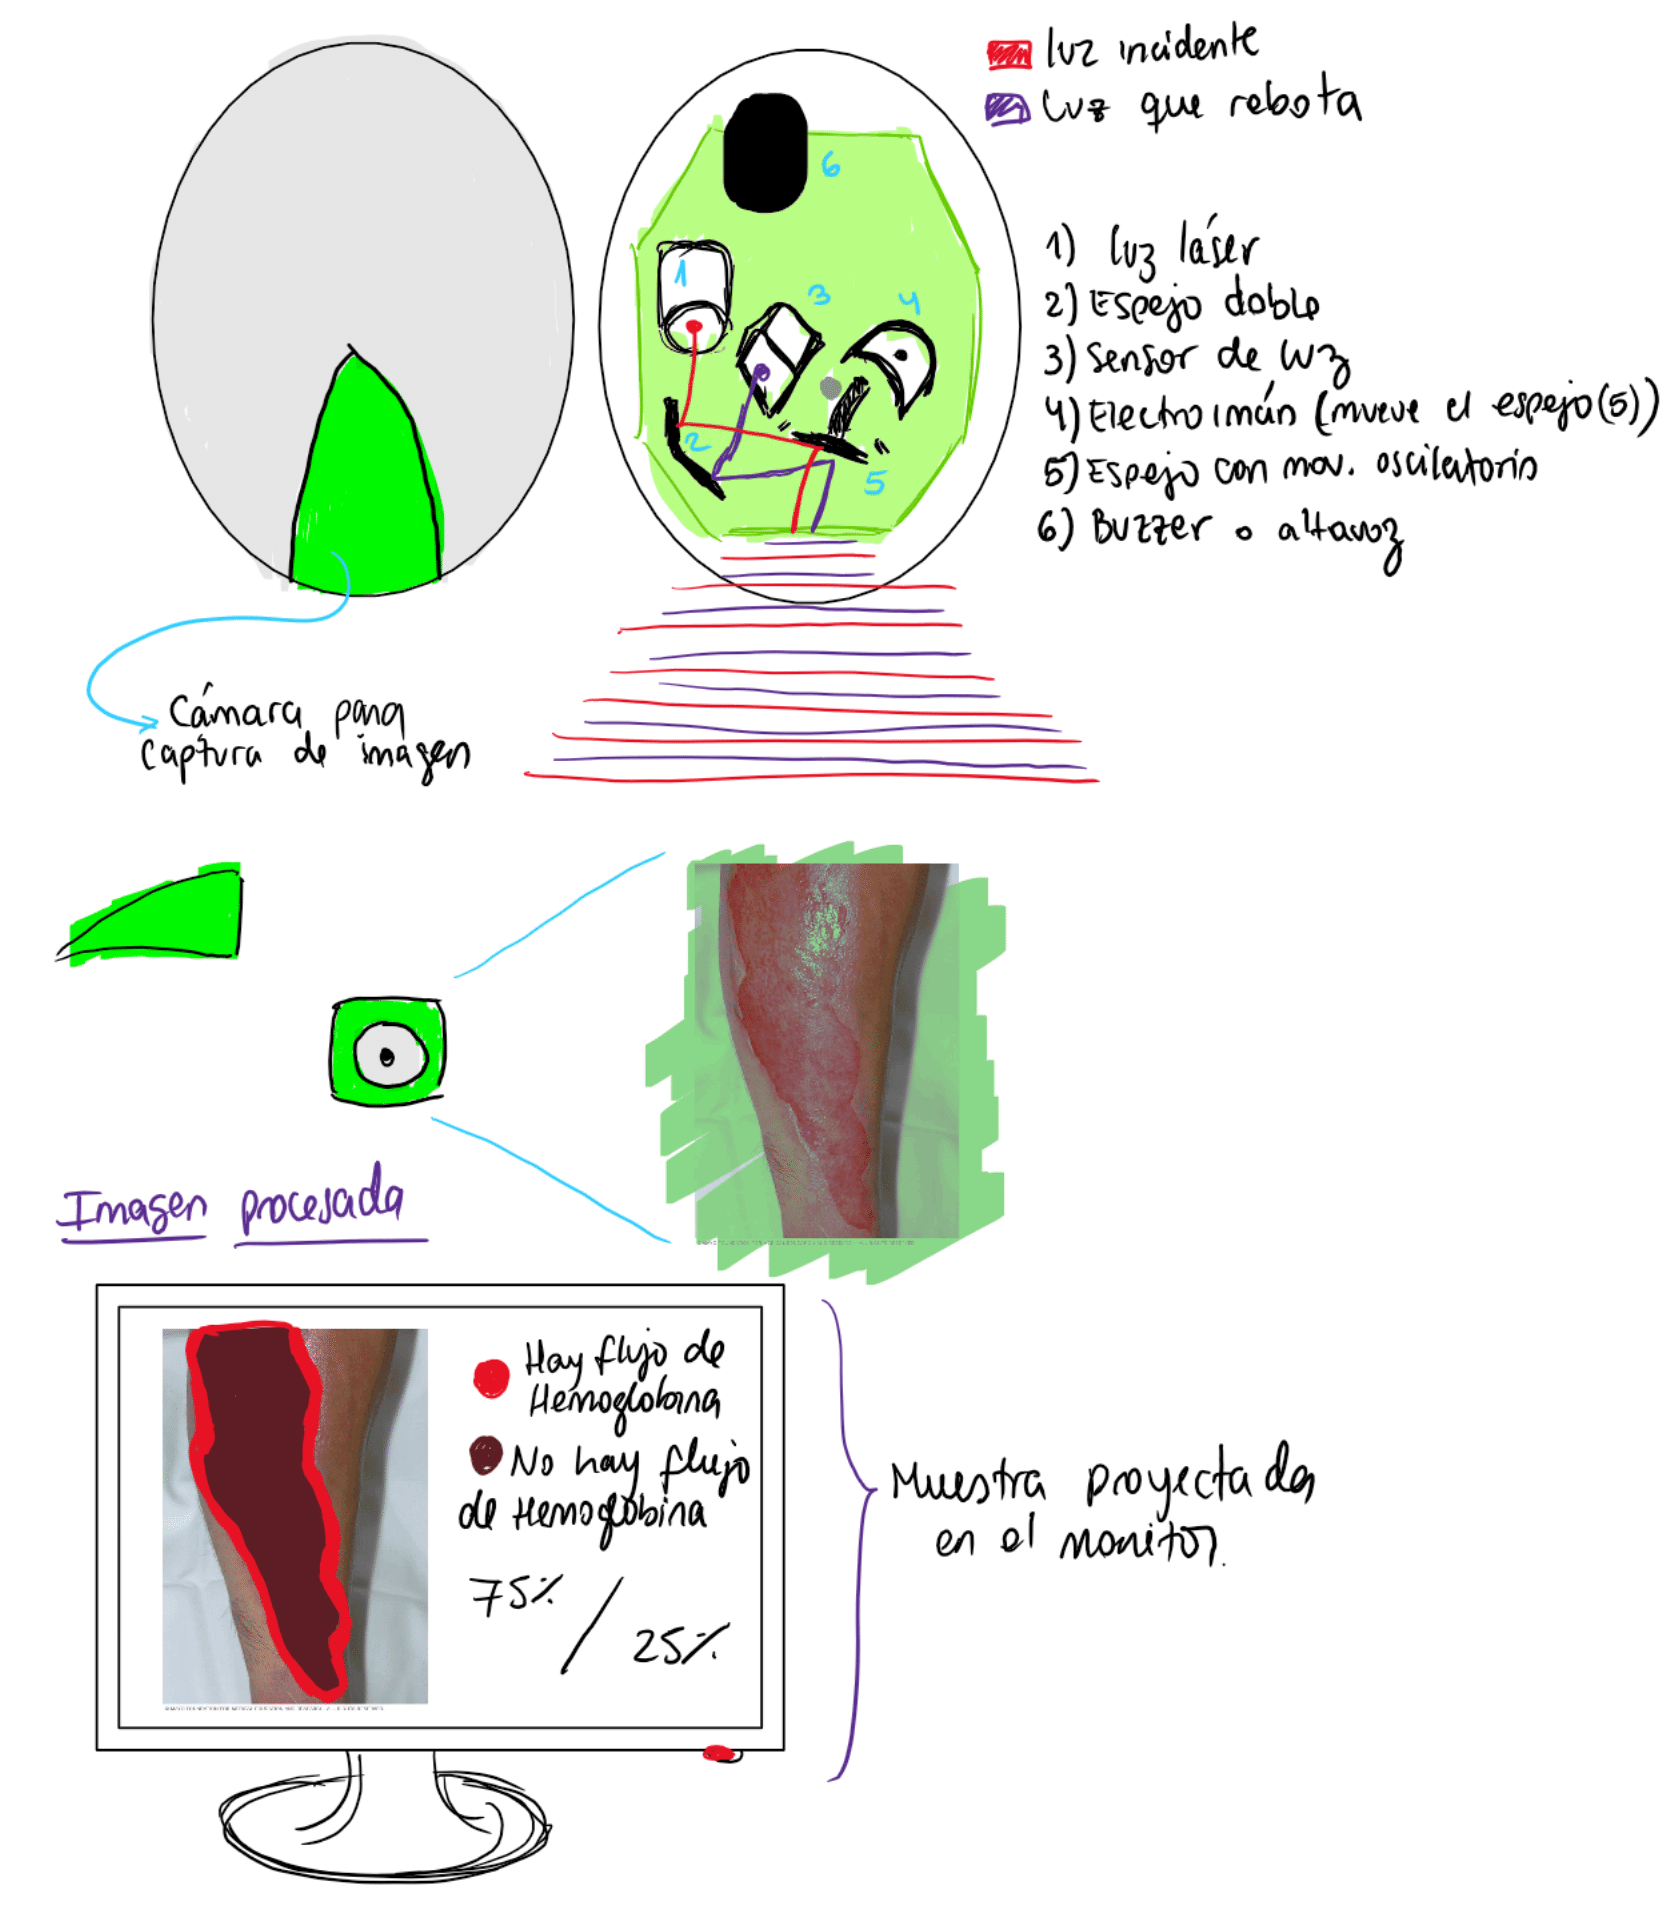 luz incidente
luz que rebota
1) luz láser
2) Espejo doble
3) Sensor de luz
4) Electroimán (mueve el espejo(5))
5) Espejo con mov. oscilatorio
6) Buzzer o altavoz
1
2
3
4
5
6
Cámara para
captura de imagen
Imagen procesada
Hay flujo de
Hemoglobina
No hay flujo
de Hemoglobina
75% / 25%
Muestra proyectada
en el monitor.